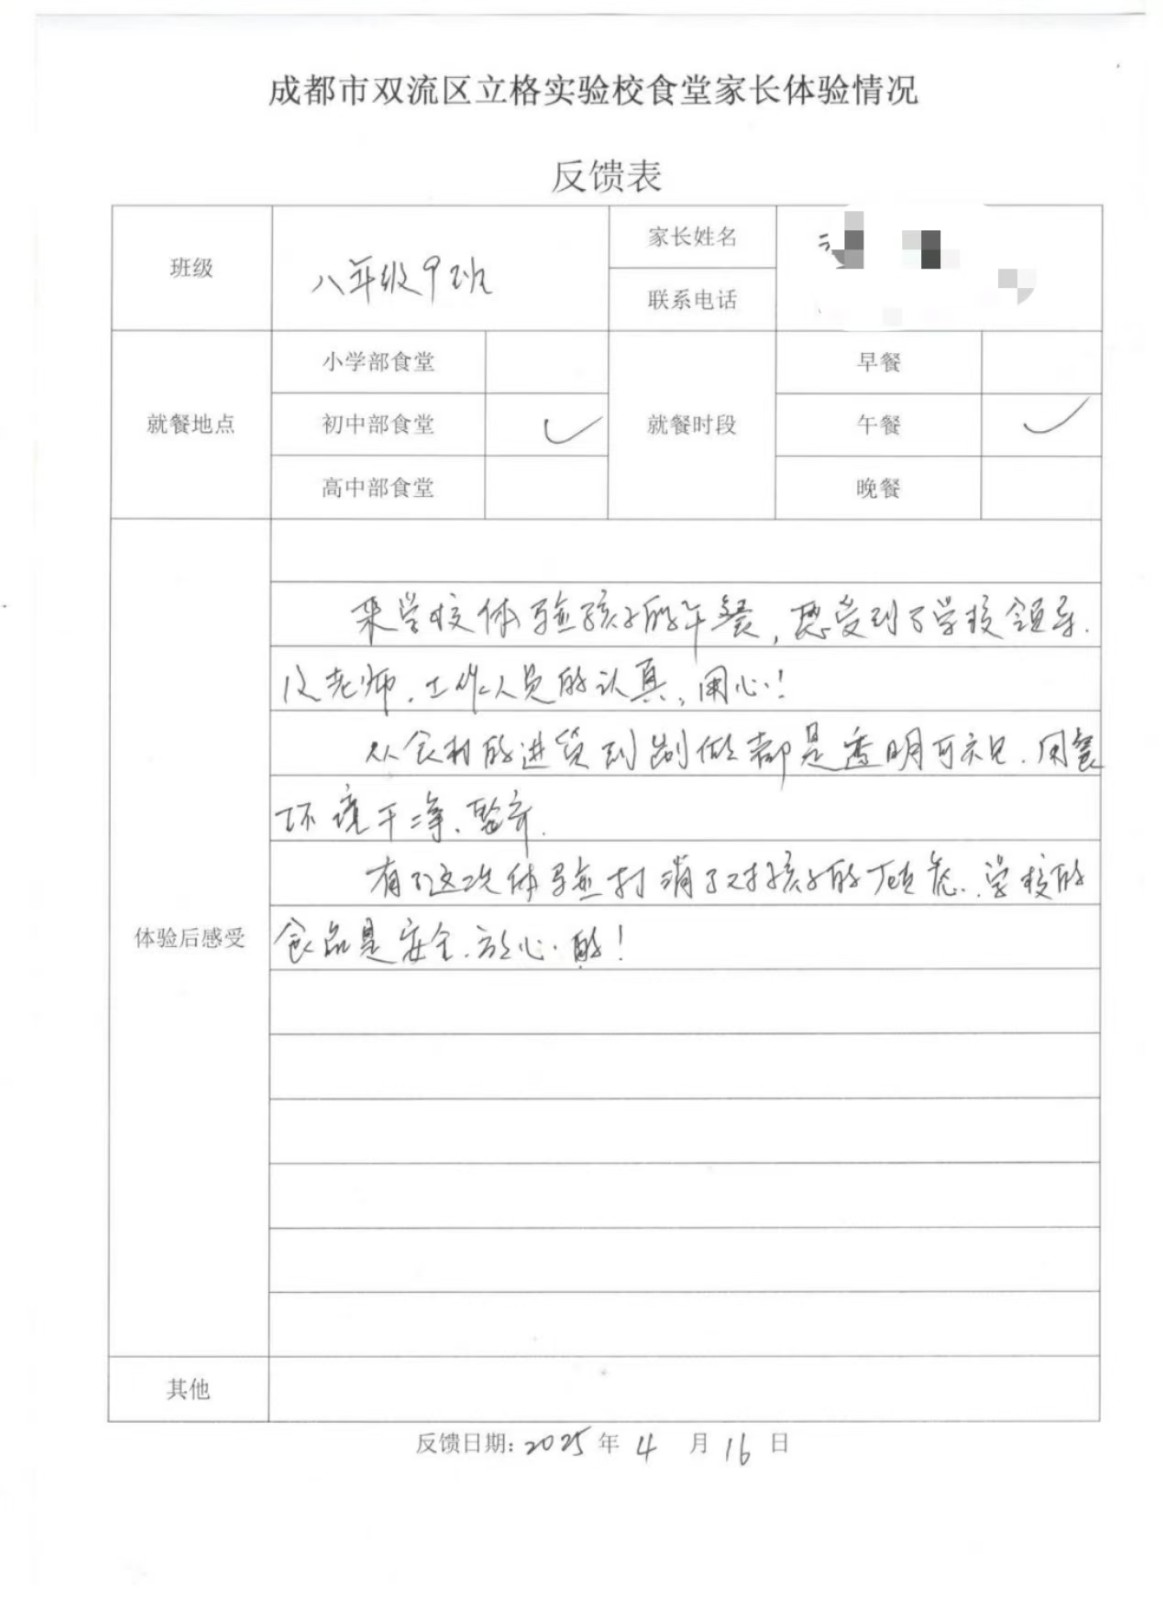 成都市双流区立格实验校食堂家长体验情况
反馈表
班级 八年级9班 家长姓名
联系电话
就餐地点 小学部食堂 就餐时段 早餐
初中部食堂 ✓ 午餐 ✓
高中部食堂 晚餐
体验后感受
来学校体验孩子的午餐,感受到了学校领导.
及老师.工作人员的认真,用心!
从食材的进货到制做都是透明可见.用餐
环境干净、整齐.
有了这次体验打消了对孩子的顾虑.学校的
食品是安全.放心的!
其他
反馈日期:2025年4月16日